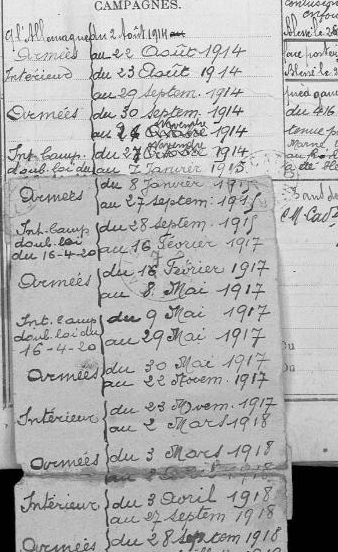 CAMPAGNES.
c/l'Allemagne du 2 Août 1914 au
Armées au 22 Août 1914
Intérieur du 23 Août 1914
au 29 Septem. 1914
Armées du 30 Septem. 1914
Novembre
au 26 1914
Novembre
Int. Camp. du 27 1914
doub. loi du au 7 Janvier 1915
Armées du 8 Janvier 1915
au 27 Septem. 1915
Int. Camp du 28 Septem. 1915
doub. loi au 16 Février 1917
du 16-4-20
Armées du 16 Février 1917
au 8 Mai 1917
Int. Camp du 9 Mai 1917
doub. loi du au 29 Mai 1917
16-4-20
Armées du 30 Mai 1917
au 22 Novem. 1917
Intérieur du 23 Novem. 1917
au 2 Mars 1918
Armées du 3 Mars 1918
au 2 Avril 1918
Intérieur du 3 Avril 1918
au 27 Septem 1918
Armées du 28 Septem 1918
contusion
Blessé le 28
Blessé le 2
du 416